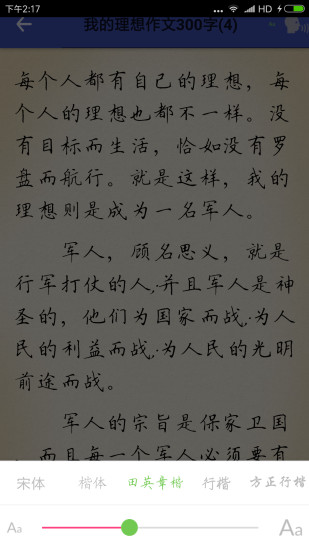 下午2:17 ... HD
我的理想作文300字(4)
每个人都有自己的理想，每
个人的理想也都不一样。没
有目标而生活，恰如没有罗
盘而航行。就是这样，我的
理想则是成为一名军人。
军人，顾名思义，就是
行军打仗的人,·并且军人是神
圣的，他们为国家而战,·为人
民的利益而战,·为人民的光明
前途而战。
军人的宗旨是保家卫国
，而且每一个军人必须要有
宋体 楷体 田英章楷 行楷 方正行楷
Aa Aa